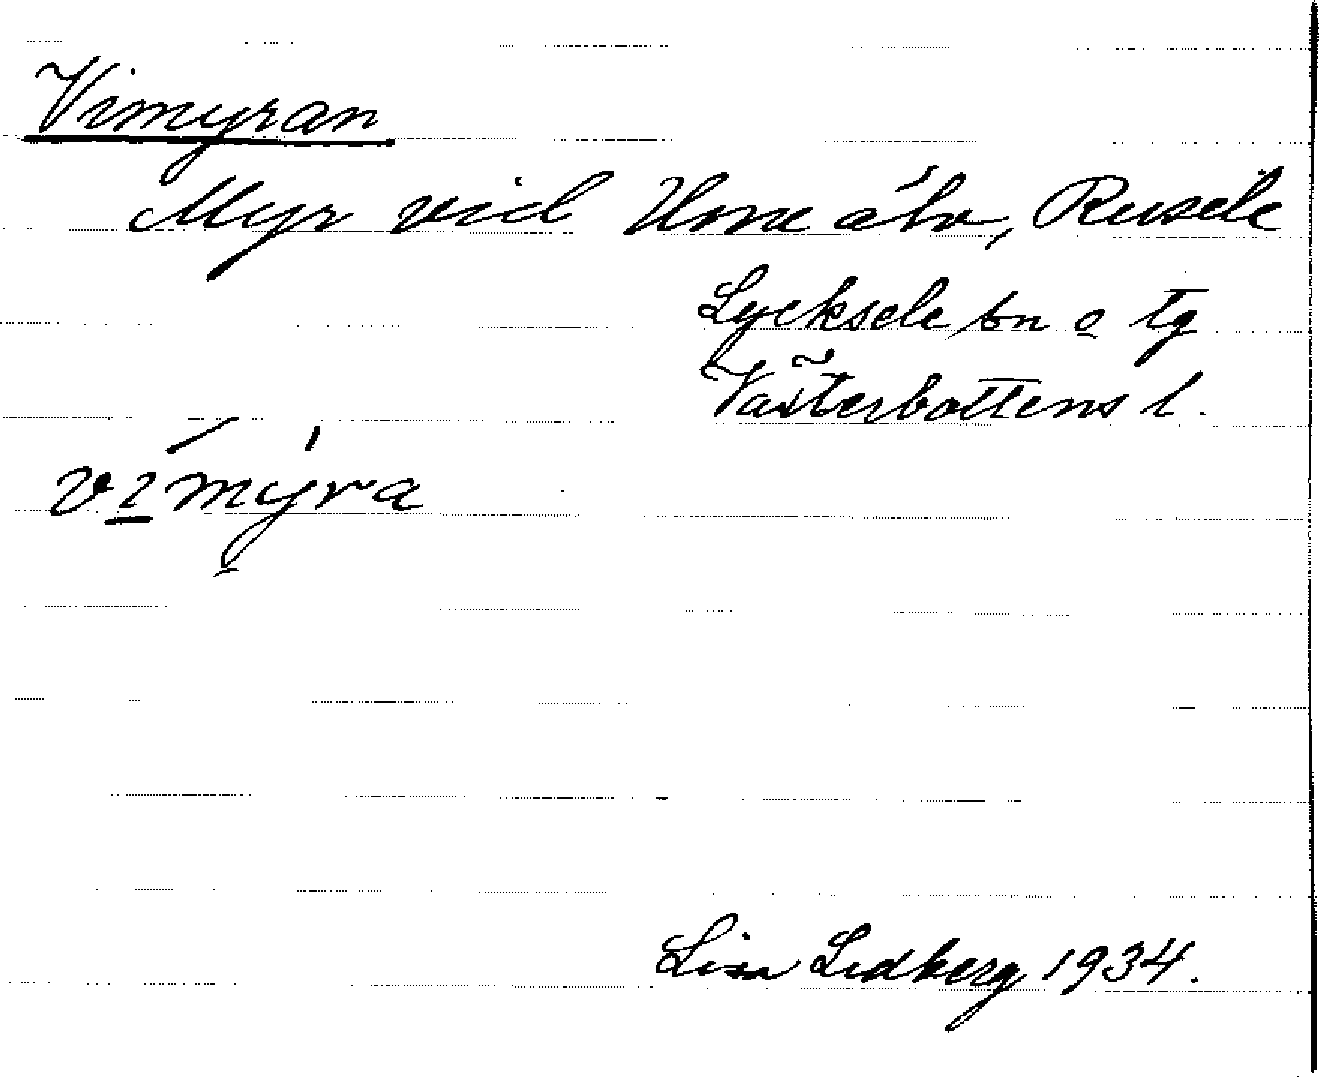 Vimyran
Myr vid Ume älv, Rusele
Lycksele sn o tg
Västerbottens l.
vı̲́mýra
Lisa Lidberg 1934.